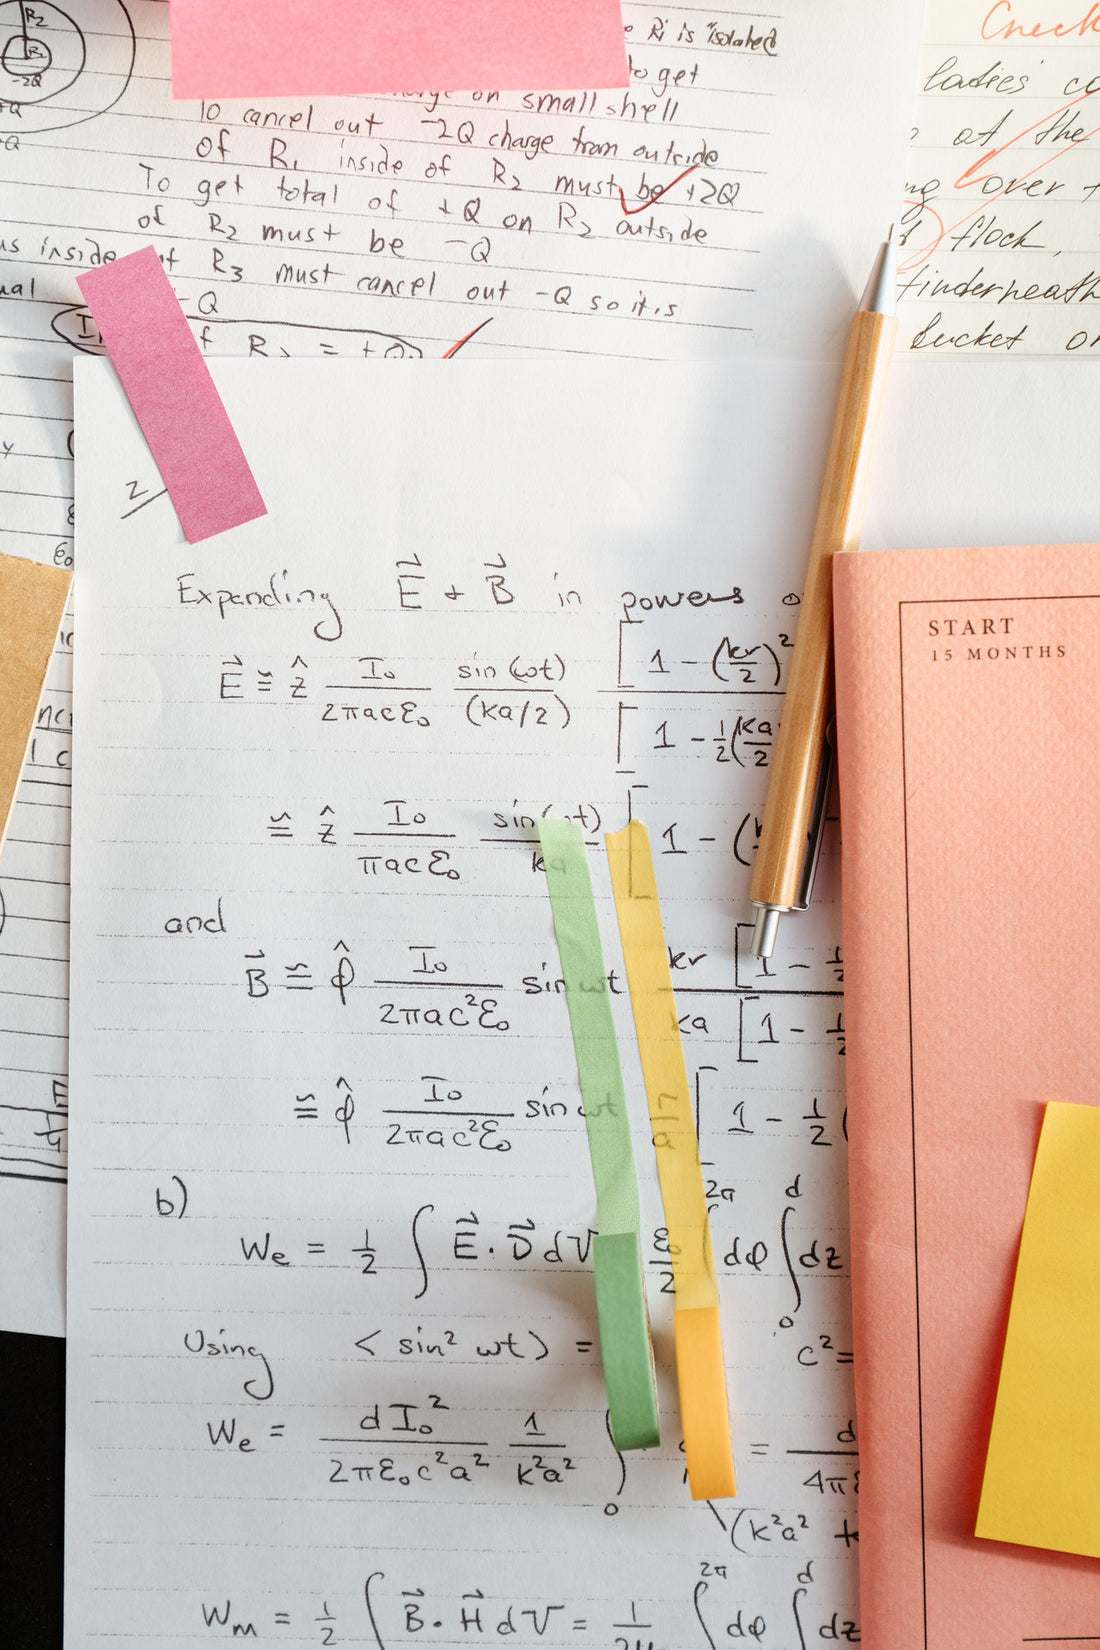 R₂
R₁
-2Q
+Q
-Q
R₁ is isolated
to get
charge on small shell
to cancel out -2Q charge from outside
of R₁ inside of R₂ must be +2Q
To get total of +Q on R₂ outside
of R₂ must be -Q
inside of R₃ must cancel out -Q so it is
-Q
Check
ladies'
at the
over
flock,
bucket
2
Expanding E⃗ + B⃗ in powers
E⃗ ≅ ẑ I₀/(2πacε₀) sin(ωt)/(ka/2) [1 - (kr/2)²/[1 - ½(ka/2
≅ ẑ I₀/(πacε₀) sin(ωt)/ka [1 - (
and
B⃗ ≅ φ̂ I₀/(2πac²ε₀) sin ωt kr [1 - ½/ka [1 - ½
≅ φ̂ I₀/(2πac²ε₀) sin ωt r/a [1 - ½(
b)
We = ½ ∫ E⃗·D⃗ dV ε₀/2 ∫ 2π dφ ∫₀ᵈ dz
Using < sin² ωt) = c² =
We = dI₀²/(2πε₀c²a²) 1/(k²a²) ∫₀ = d/4π
(k²a²
Wm = ½ ∫ B⃗·H⃗ dV = 1/2μ ∫ 2π dφ ∫ᵈ dz
START
15 MONTHS